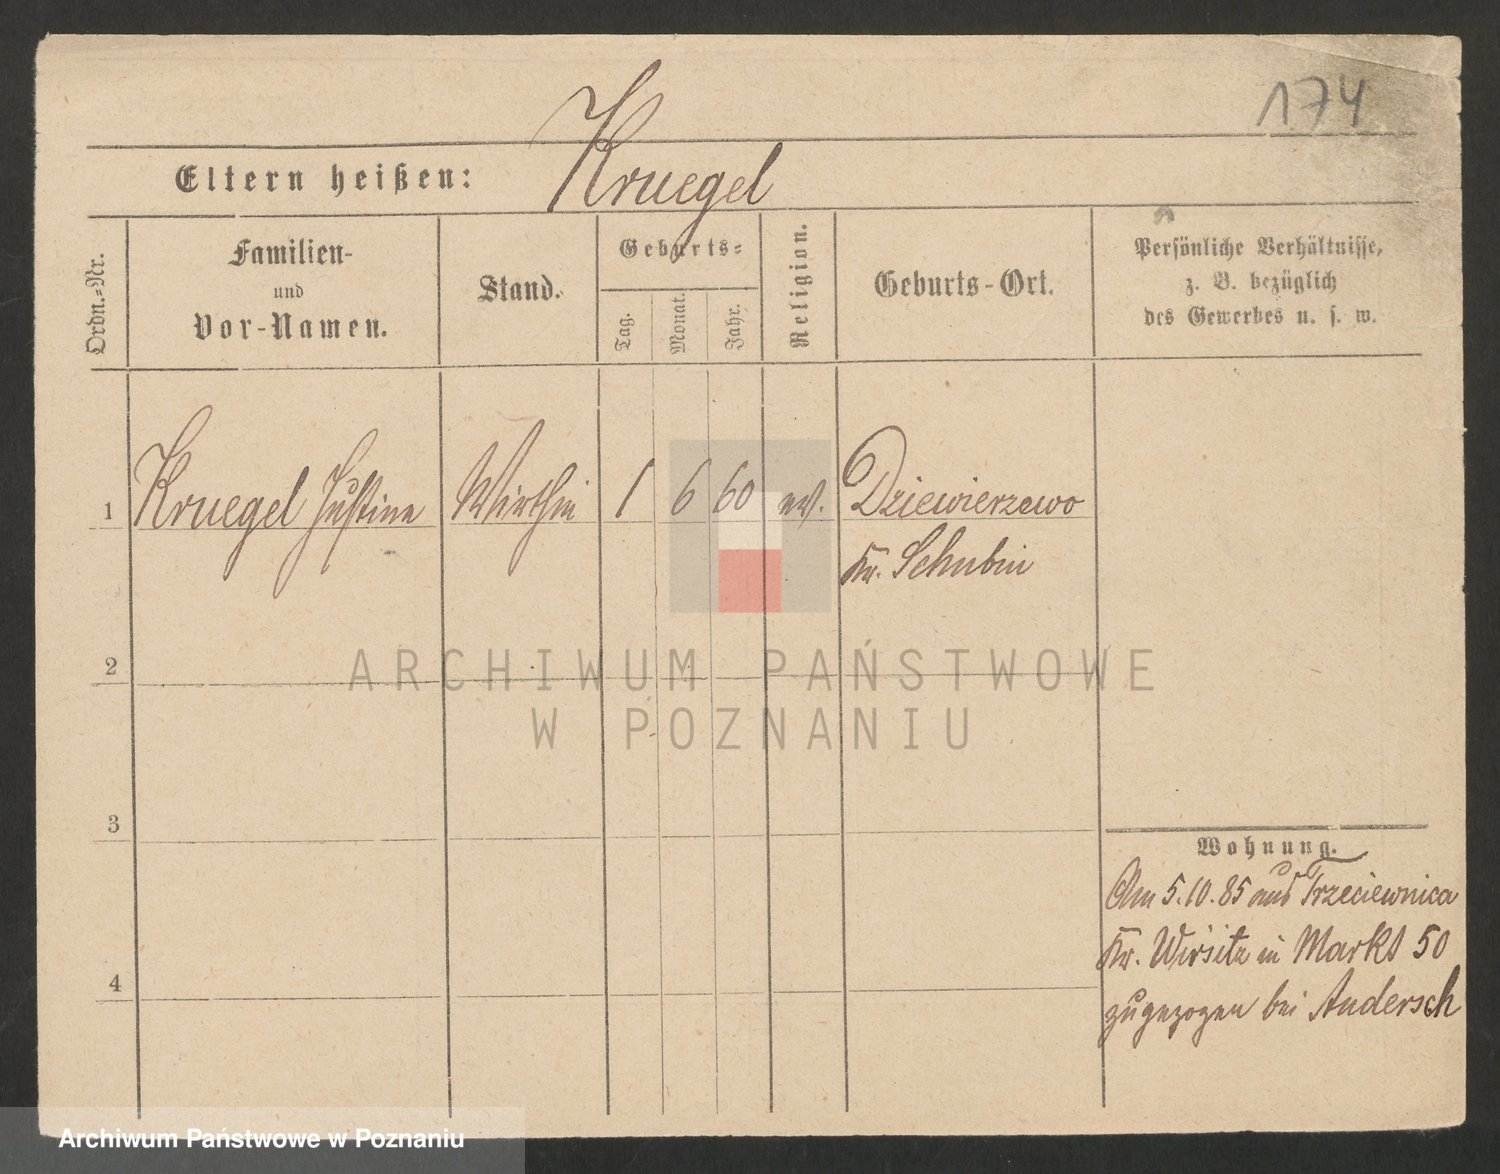 174
Kruegel
Eltern heißen:
Ordn.-Nr.
Familien-
und
Vor-Namen.
Stand.
Geburts-
Tag.
Monat.
Jahr.
Religion.
Geburts-Ort.
Persönliche Verhältnisse,
z. B. bezüglich
des Gewerbes u. s. w.
1 Kruegel Justine Wirthin 1 6 60 ev. Dziewierzewo
Kr. Schubin
2
ARCHIWUM PAŃSTWOWE
W POZNANIU
3
Wohnung.
Am 5.10.85 aus Trzeciewnica
Kr. Wirsitz in Markt 50
4
zugezogen bei Andersch
Archiwum Państwowe w Poznaniu